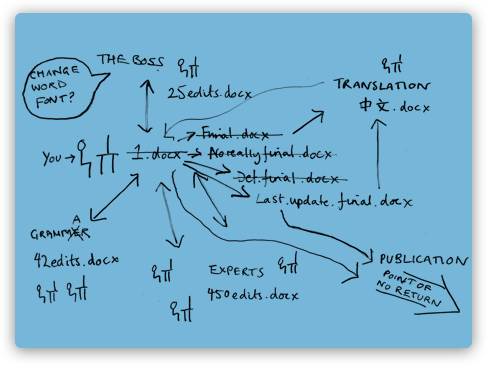 CHANGE
WORD
FONT?
THE BOSS
25edits.docx
TRANSLATION
中文.docx
Final.docx
You →
1.docx
No really final.docx
Def.final.docx
Last.update.final.docx
GRAMMER
A
42edits.docx
EXPERTS
450edits.docx
PUBLICATION
POINT OF
NO RETURN